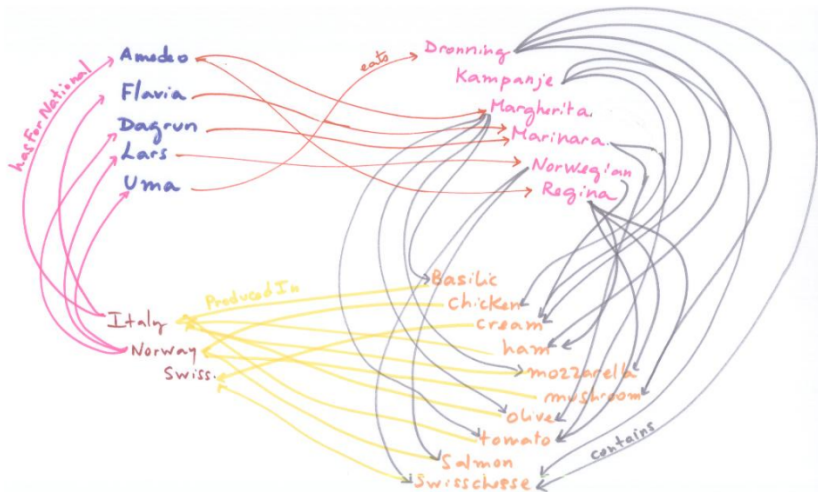 Amedeo
Flavia
Dagrun
Lars
Uma
hasForNational
eats
Dronning
Kampanje
Margherita
Marinara
Norwegian
Regina
Italy
Norway
Swiss.
Produced In
Basilic
chicken
cream
ham
mozzarella
mushroom
olive
tomato
Salmon
Swisscheese
contains